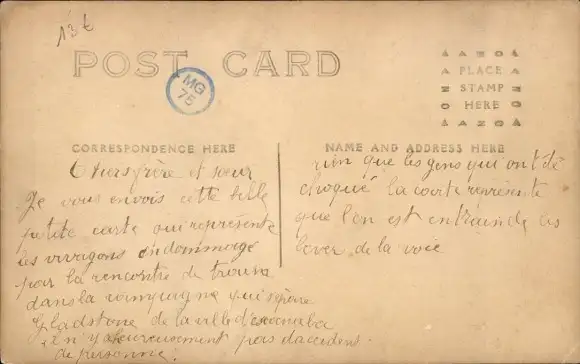 13 €
POST CARD
MG
75
AZO
PLACE
STAMP
HERE
AZO
CORRESPONDENCE HERE
Chers frère et sœur
Je vous envois cette belle
petite carte qui représente
les wragons endommagé
par la rencontre de
dans la compagne qui
gladstone de la ville d'escanaba
il n'y heureusement pas d'accident
de personne.
NAME AND ADDRESS HERE
rien que les gens qui ont été
choqué la carte représente
que l'on est entrain de les
lever de la voie